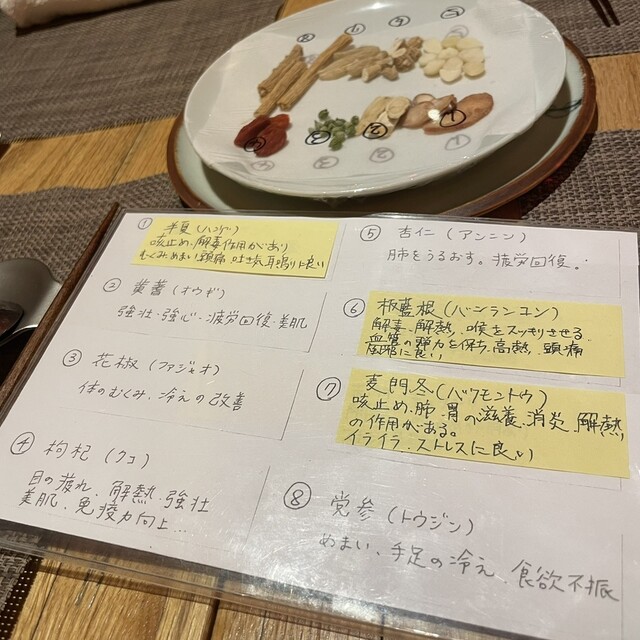 ① 半夏(ハンゲ)
咳止め、解毒作用があり
むくみめまい頭痛 吐き気耳鳴りに良い
② 黄耆(オウギ)
強壮・強心・疲労回復・美肌
③ 花椒(ファジャオ)
体のむくみ、冷えの改善
④ 枸杞(クコ)
目の疲れ、解熱、強壮
美肌、免疫力向上...
⑤ 杏仁(アンニン)
肺をうるおす。疲労回復。
⑥ 板藍根(バンランコン)
解毒、解熱、喉をスッキリさせる
血管の弾力を保ち、高熱、頭痛
に良い
⑦ 麦門冬(バクモントウ)
咳止め、肺、胃の滋養、消炎、解熱
の作用がある。
イライラ、ストレスに良い
⑧ 党参(トウジン)
めまい、手足の冷え、食欲不振